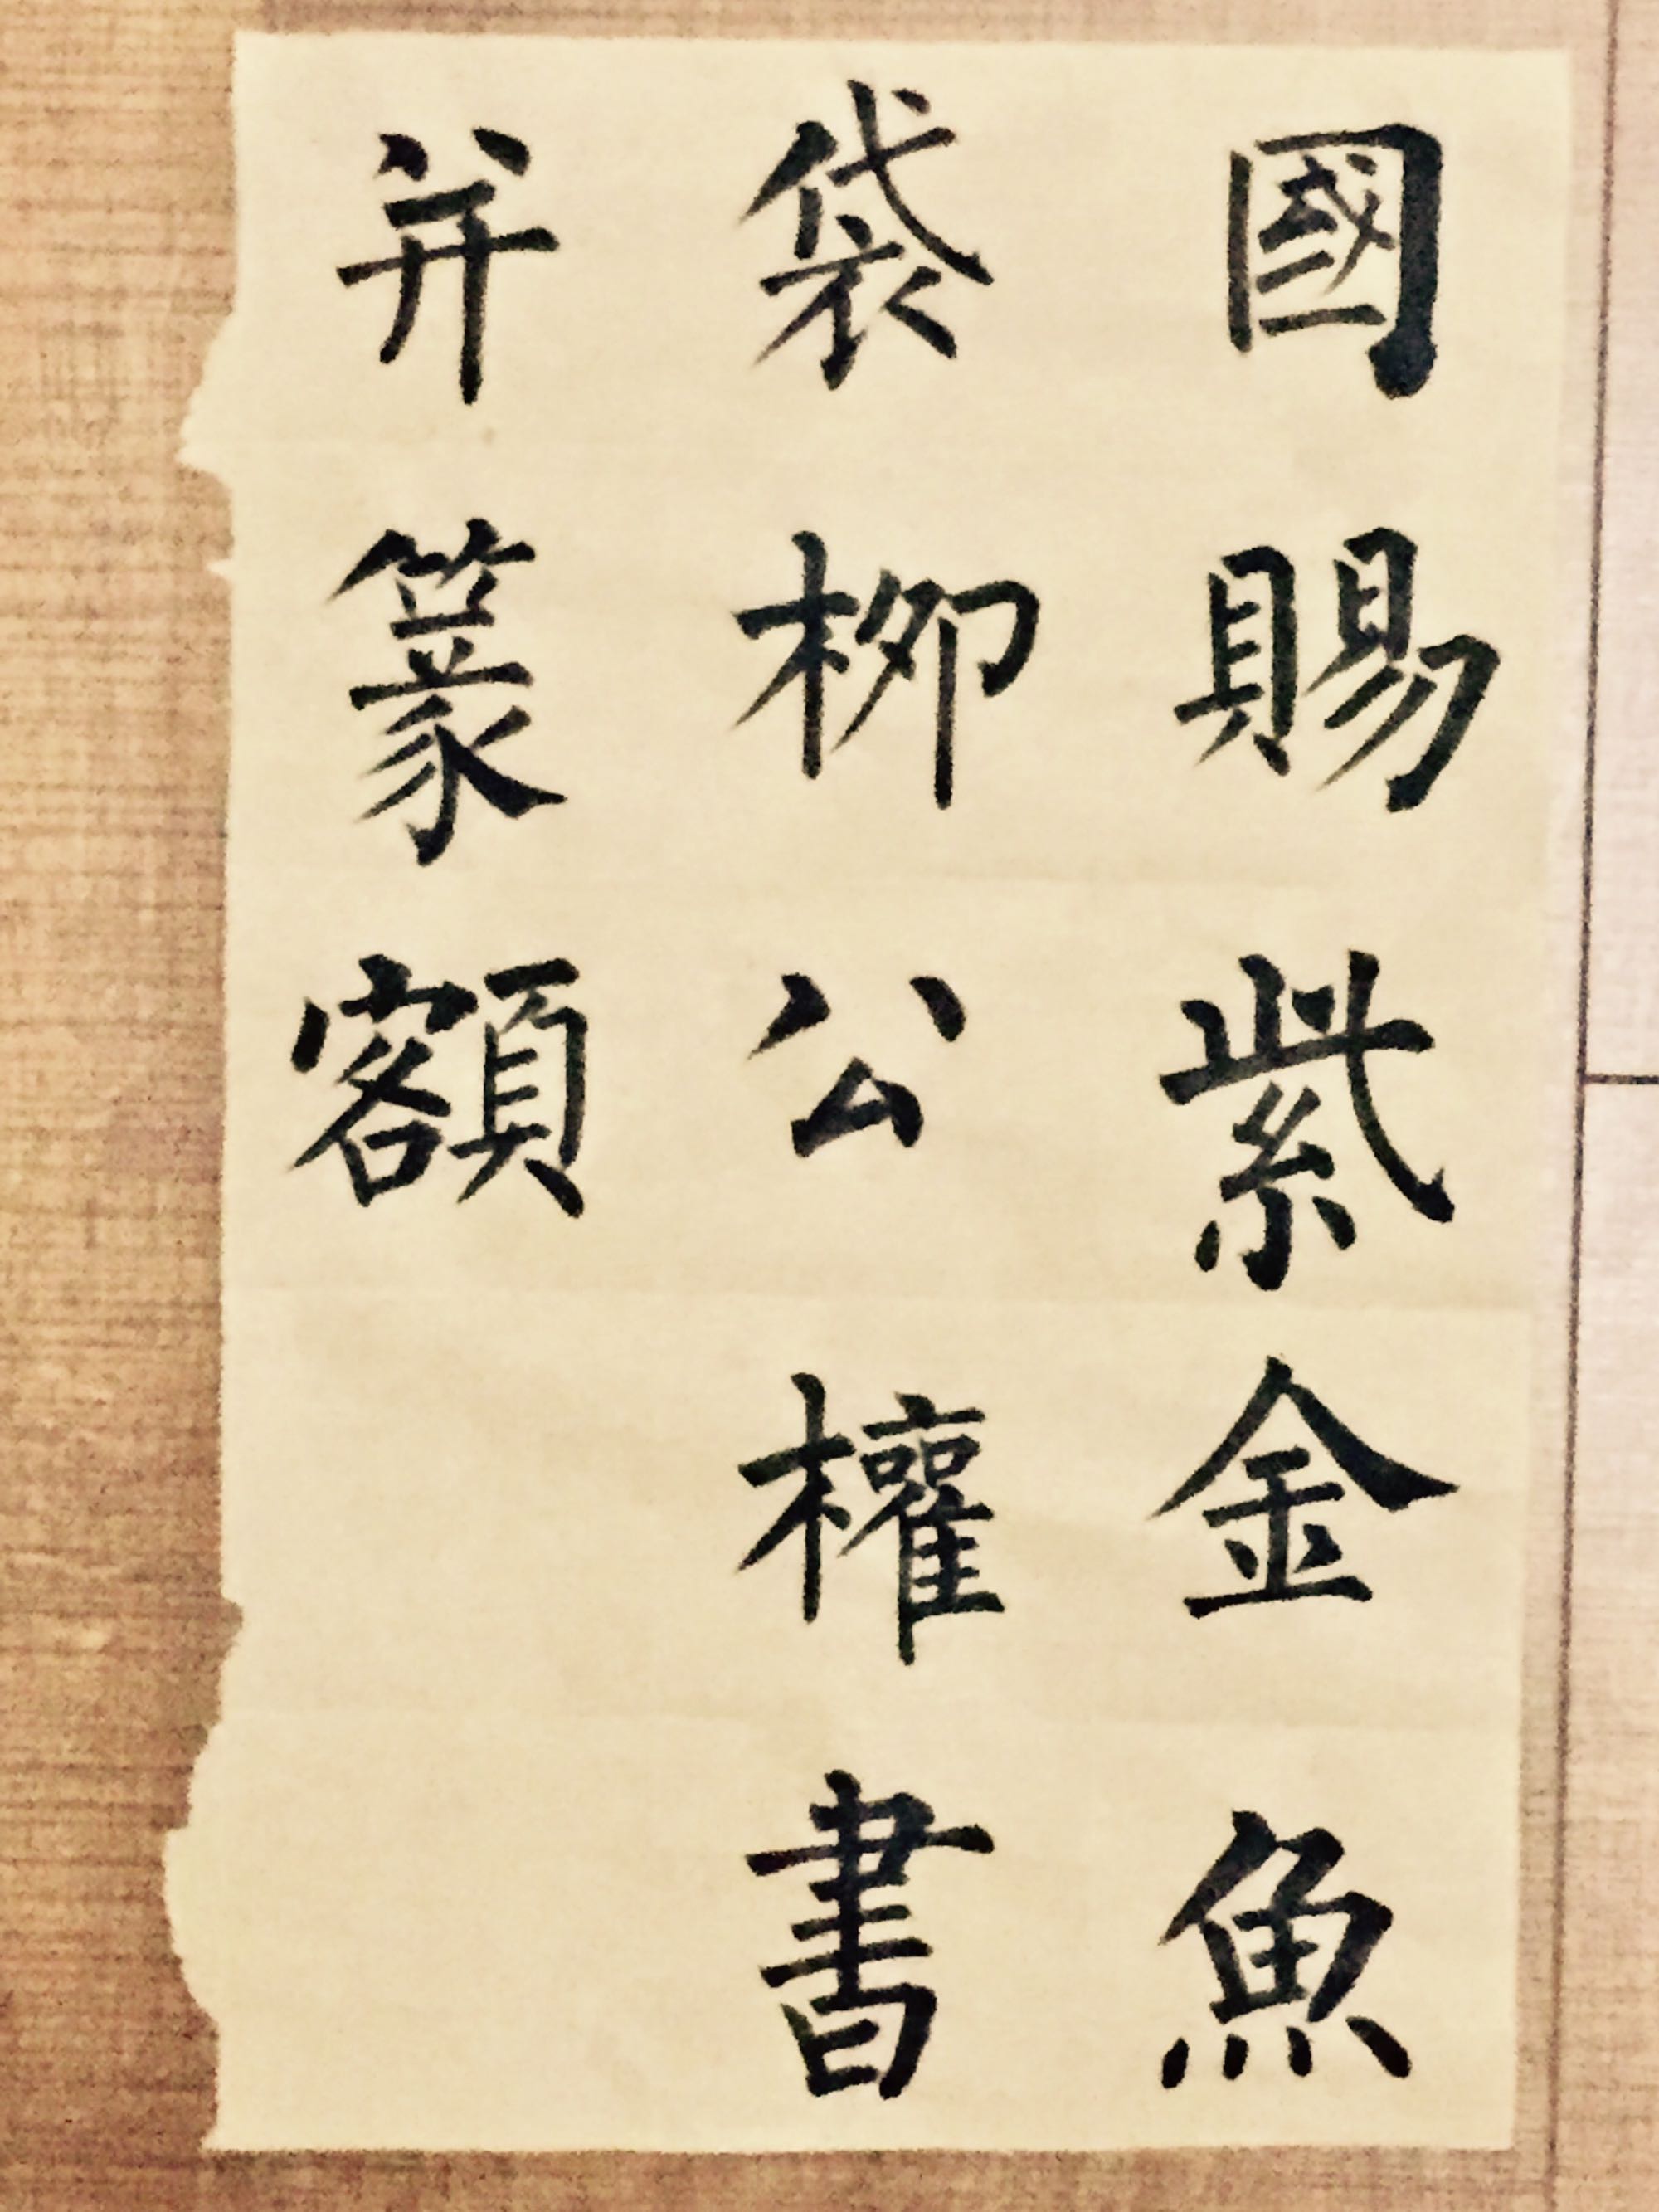 國賜紫金魚
袋柳公權書
并篆額